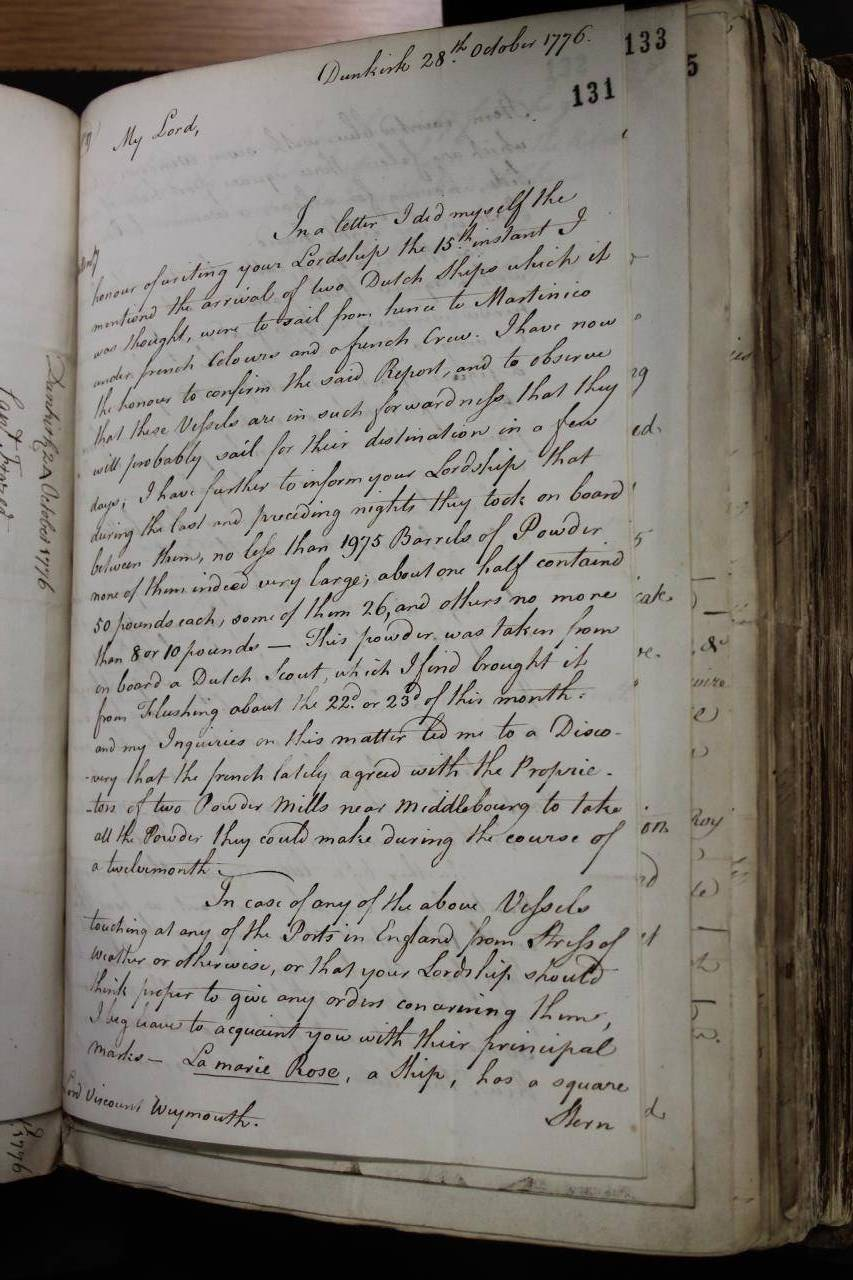 Dunkirk 28th October 1776.
133
131
5
My Lord,
In a letter I did myself the
honour of writing your Lordship the 15th instant I
mentiond the arrival of two Dutch Ships which it
was thought, were to sail from hence to Martinico
under french Colours and a french Crew. I have now
the honour to confirm the said Report, and to observe
that these Vessels are in such forwardness that they
will probably sail for their distination in a few
days; I have further to inform your Lordship that
during the last and preceding nights they took on board
between them, no less than 1975 Barrels of Powder
none of them indeed very large; about one half containd
50 pounds each, some of them 26, and others no more
than 8 or 10 pounds — This powder was taken from
on board a Dutch Scout, which I find brought it
from Flushing about the 22d. or 23d of this month.
and my Inquiries on this matter led me to a Disco-
-very that the french lately agreed with the Proprie-
-tors of two Powder Mills near Middlebourg to take
all the Powder they could make during the course of
a twelvemonth.
In case of any of the above Vessels
touching at any of the Ports in England from Stress of
Weather or otherwise, or that your Lordship should
think proper to give any orders concerning them,
I beg leave to acquaint you with their principal
marks — La marie Rose, a Ship, has a square
Stern
Lord Viscount Weymouth.
Dunkirk 28 October 1776
Capt. Frazer
1776